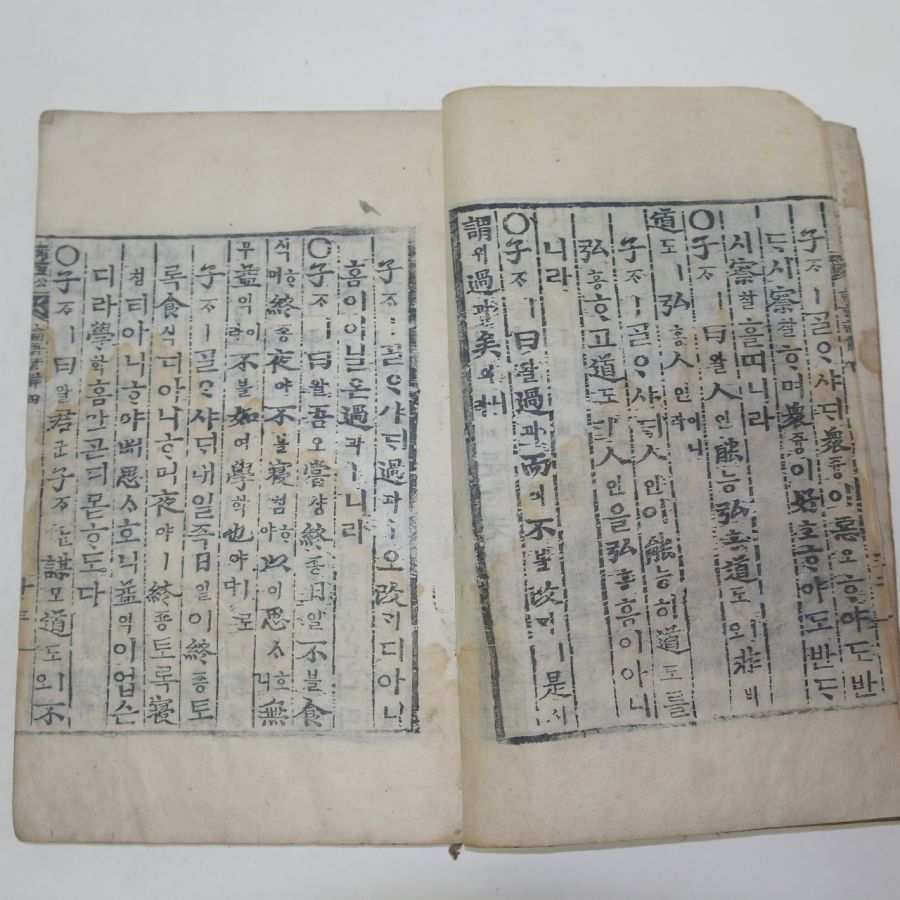 子ᄌᆞㅣ ᄀᆞᆯᄋᆞ샤ᄃᆡ 衆즁이 惡오ᄒᆞ야도 반
ᄃᆞ시 察찰ᄒᆞ며 衆즁이 好호ᄒᆞ야도 반ᄃᆞ
시 察찰홀띠니라
○子ᄌᆞㅣ 曰왈人인能능弘홍道도ㅣ오 非비
道도ㅣ 弘홍人인이니라
子ᄌᆞㅣ ᄀᆞᆯᄋᆞ샤ᄃᆡ 人인이 能능히 道도를
弘홍ᄒᆞ고 道도ㅣ 人인을 弘홍홈이 아니
니라
○子ᄌᆞㅣ 曰왈過과而이不불改ᄀᆡㅣ 是시
謂위過과矣의니라
子ᄌᆞㅣ ᄀᆞᆯᄋᆞ샤ᄃᆡ 過과ㅣ오 改ᄀᆡ티 아니
홈이 이 닐온 過과ㅣ니라
○子ᄌᆞㅣ 曰왈吾오嘗샹終죵日일不불食
식ᄒᆞ며 終죵夜야不불寢침ᄒᆞ야 以이思ᄉᆞ호니 無
무益익이라 不불如여學ᄒᆞᆨ也야ㅣ로다
子ᄌᆞㅣ ᄀᆞᆯᄋᆞ샤ᄃᆡ 내 일즉 日일이 終죵토
록 食식디 아니ᄒᆞ며 夜야ㅣ 終죵토록 寢
침티 아니ᄒᆞ야 ᄡᅥ 思ᄉᆞ호니 益익이 업슨
디라 學ᄒᆞᆨ홈 ᄀᆞᆮ디 몯ᄒᆞ도다
○子ᄌᆞㅣ 曰왈君군子ᄌᆞᄂᆞᆫ 謀모道도ㅣ오 不
論語諺解四